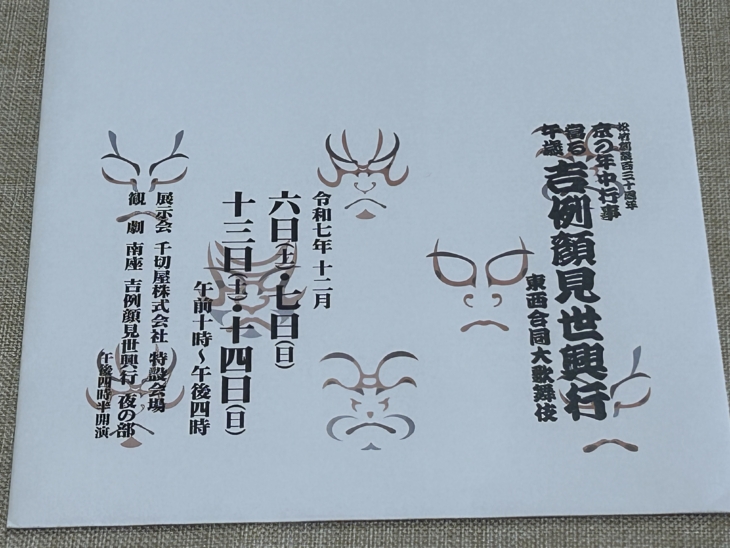 松竹創業百三十周年
京の年中行事
當る午歳 吉例顔見世興行
東西合同大歌舞伎
令和七年十二月
六日(土)・七日(日)
十三日(土)・十四日(日)
午前十時～午後四時
展示会 千切屋株式会社 特設会場
観劇 南座 吉例顔見世興行 夜の部
午後四時半開演